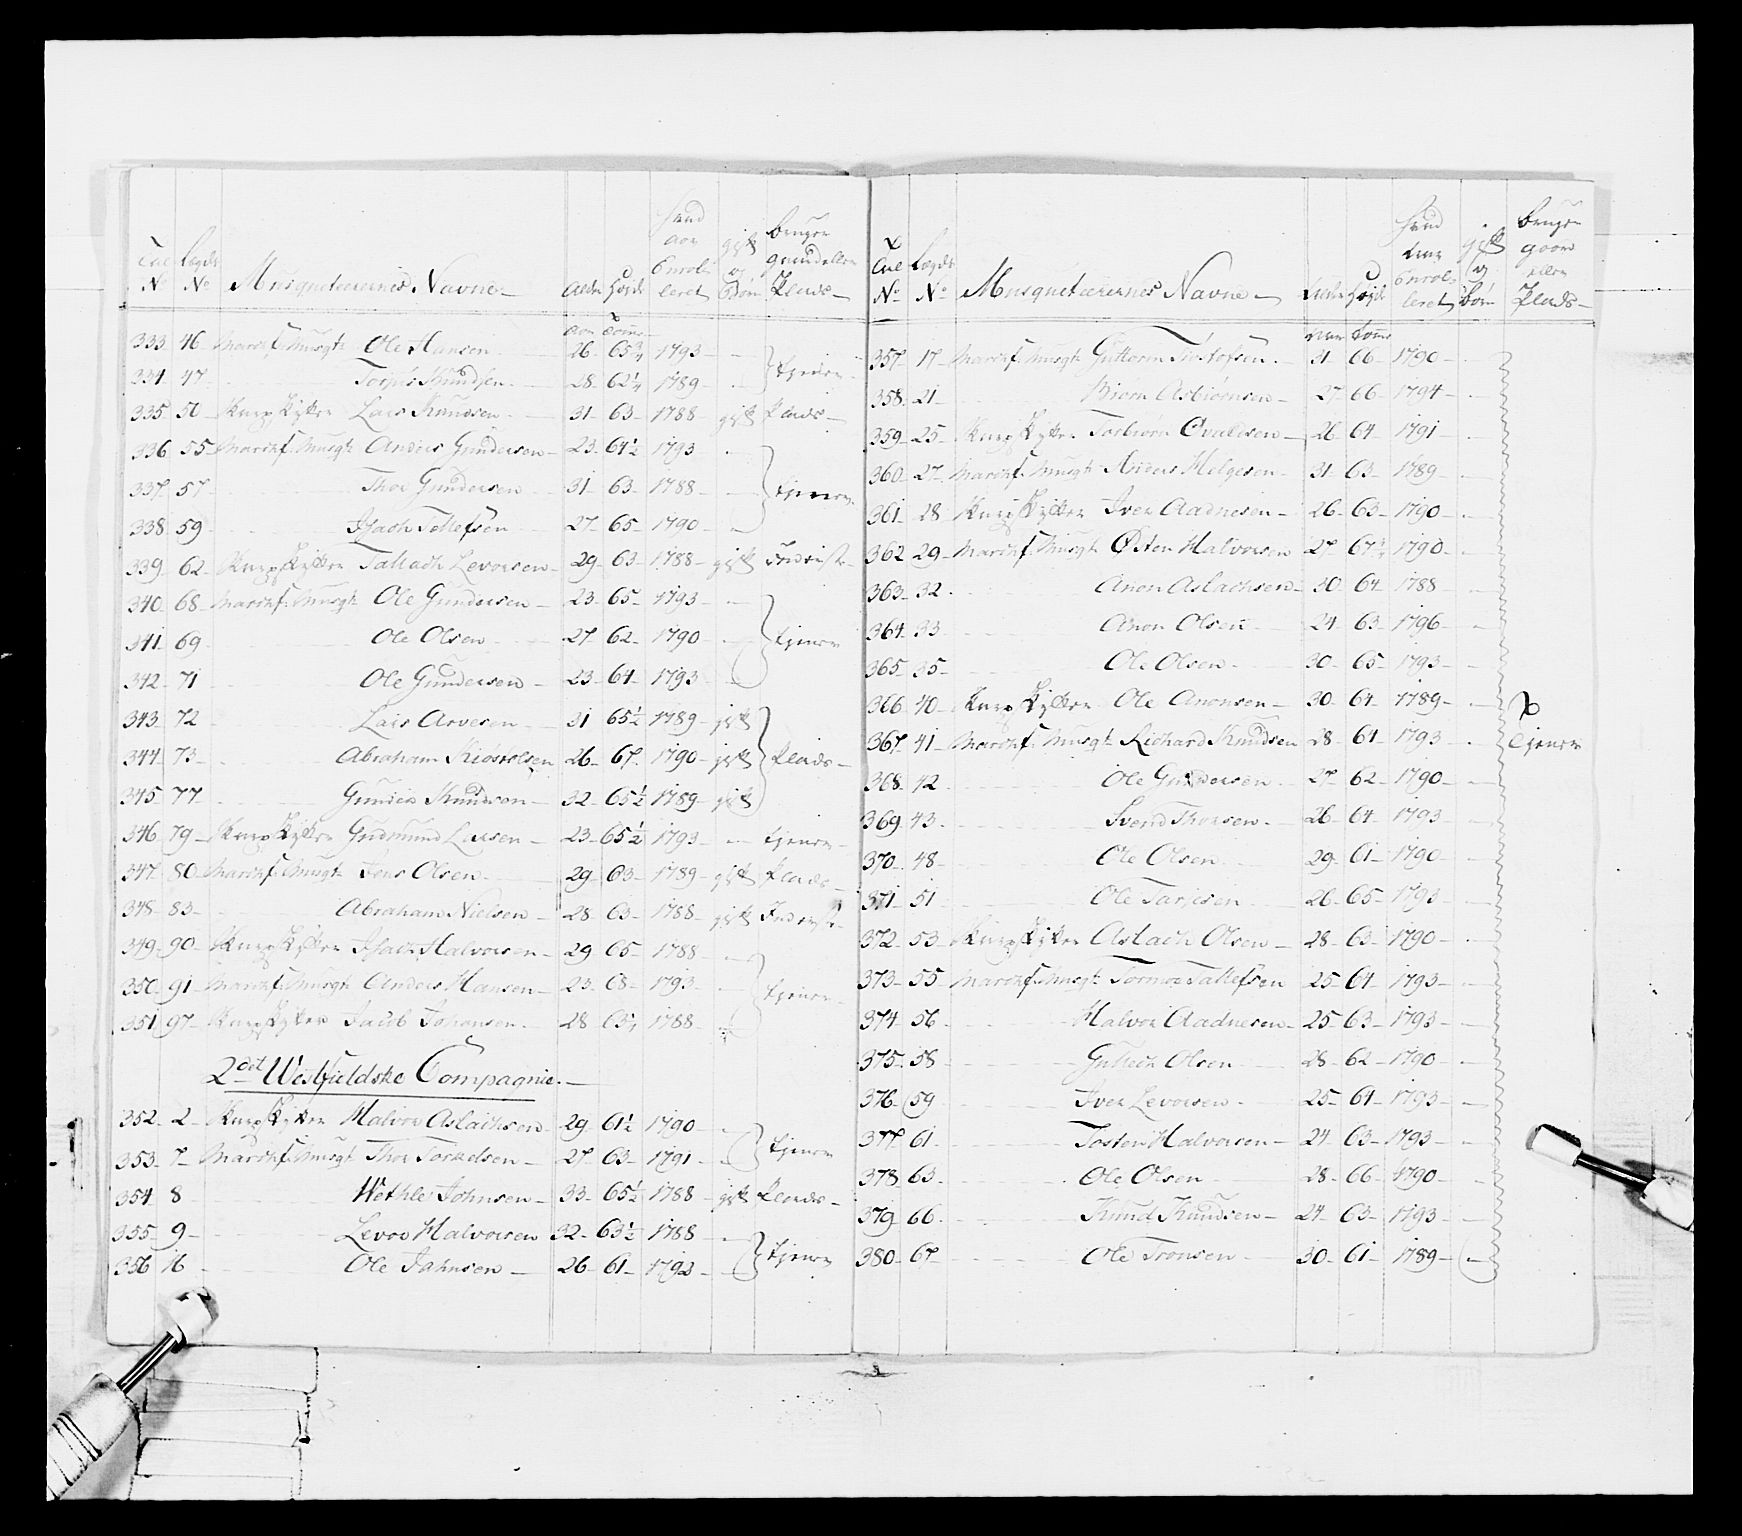 Tal No Lægds No Musqueteerernes Navne Alder Højde hvad aar Enrolleret gift og Børn bruger gaard eller Plads
aar Tomme
333 46 March. f. Musqt. Ole Hansen 26 65 3/4 1793
334 47 Torjus Knudsen 28 62 1/4 1789 tjener
335 50 Knap Lars Knudsen 31 63 1788 gift Plads
336 55 March. f. Musqt. Anders Gundersen 23 64 1/2 1793
337 57 Thor Gundersen 31 63 1788 tjener
338 59 Isach Tellefsen 27 65 1790
339 62 Knap Tallach Levorsen 29 63 1788 gift Inderst
340 68 March. f. Musqt. Ole Gundersen 23 65 1793
341 69 Ole Olsen 27 62 1790 tjener
342 71 Ole Gundersen 23 64 1793
343 72 Lars Arvesen 31 65 1/2 1789 gift
344 73 Abraham 26 67 1790 gift Plads
345 77 Gunder Knudsen 32 65 1/2 1789 gift
346 79 Knap Gudmund Larsen 23 65 1/2 1793 tjener
347 80 March. f. Musqt. Jens Olsen 29 63 1789 gift Plads
348 83 Abraham Nielsen 28 63 1788 gift Inderst
349 90 Knap Isach Halvorsen 29 65 1788
350 91 March. f. Musqt. Anders Hansen 23 68 1793 tjener
351 97 Knap Jacob Johansen 28 1788
2det Westfieldske Compagnie
352 2 Knap Halvor Aslachsen 29 61 1/2 1790
353 7 March. f. Musqt. Thor Torkelsen 27 63 1791 tjener
354 8 Wethle Johnsen 33 65 1/2 1788 gift Plads
355 9 Levor Halvorsen 32 63 1/2 1788
356 16 Ole Jahnsen 26 61 1793 tjener
Tal No Lægds No Musqueteerernes Navne Alder Højde hvad aar Enrolleret gift og Børn bruger gaard eller Plads
aar Tomme
357 17 March. f. Musqt. Guttorm 31 66 1790
358 21 Biørn Asbiørnsen 27 66 1794
359 25 Knap Torbiørn 26 64 1791
360 27 March. f. Musqt. Anders Helgesen 31 63 1789
361 28 Knap Iver Aadnesen 26 63 1790
362 29 March. f. Musqt. Østen Halvorsen 27 67 1790
363 32 Anon Aslachsen 30 64 1788
364 33 Anon Olsen 24 63 1796
365 35 Ole Olsen 30 65 1793
366 40 Knap Ole Anonsen 30 64 1789
367 41 March. f. Musqt. Richard Knudsen 28 64 1793 tjener
368 42 Ole Gundersen 27 62 1790
369 43 Svend Thorsen 26 64 1793
370 48 Ole Olsen 29 61 1790
371 51 Ole Tarjesen 26 65 1793
372 53 Knap Aslach Olsen 28 63 1790
373 55 March. f. Musqt. Tormoe Tallefsen 25 64 1793
374 56 Halvor Aadnesen 25 63 1793
375 58 Olsen 28 62 1790
376 59 Iver Levorsen 25 64 1793
377 61 Josten Halvorsen 24 63 1793
378 63 Ole Olsen 28 66 1790
379 66 Knud Knudsen 24 63 1793
380 67 Ole Tronsen 30 61 1789